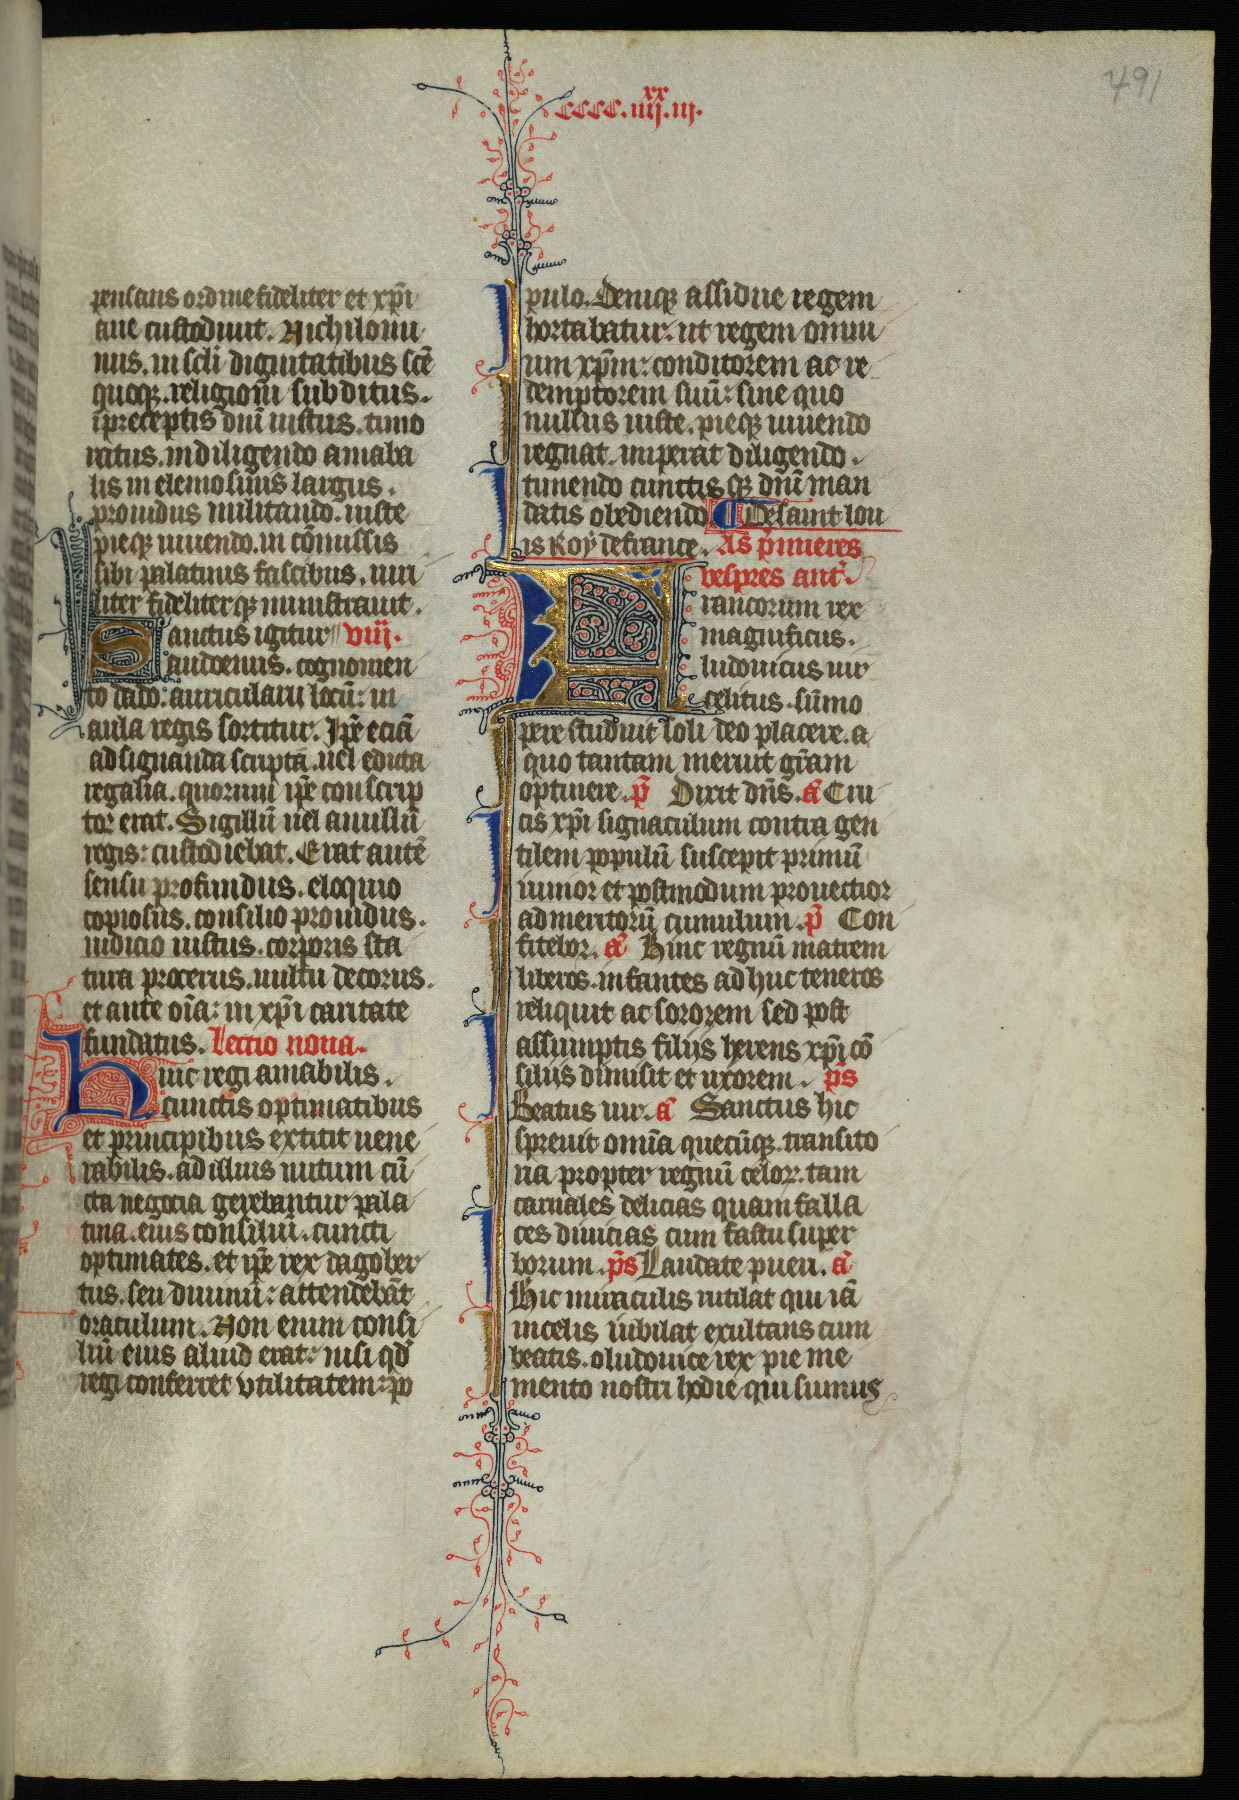 491
xx
CCCC.iiij.iij.
pensans ordine fideliter et xp̃i
ane custodiuit. Nichilomi
nus. in scl̃i dignitatibus sc̃e
quoqꝫ. religioni subditus.
ip̃receptis dñi iustus. timo
ratus. in diligendo amaba
lis in elemosinis largus.
prouidus militando. iuste
pieqꝫ uiuendo. in cõmissis
sibi palatinis fascibus. uiri
liter fideliterqꝫ ministrauit.
Sanctus igitur viij.
audoenus. cognomen
to dado: auricularii locũ: in
aula regis sortitur. Ip̃e eciã
ad signanda scripta. uel edicta
regalia. quorum ip̃e conscrip
tor erat. Sigillũ uel anullũ
regis: custodiebat. Erat autẽ
sensu profundus. eloquio
copiosus. consilio prouidus.
iudicio iustus. corporis sta
tura procerus. uultu decorus.
et ante oĩa: in xp̃i caritate
fundatus. Lectio nona.
huic regi amabilis.
cunctis optimatibus
et principibus extitit uene
rabilis. ad illius nutum cũ
cta negocia gerebantur pala
tina. eius consiliũ. cuncti
optimates. et ip̃e rex dagober
tus. seu diuinũ: attendebãt
oraculum. Non enim consi
liũ eius aliud erat: nisi qđ
regi conferret vtilitatem: po
pulo. Deniqꝫ assidue regem
hortabatur. ut regem omni
um xp̃m: conditorem ac re
demptorem suũ: sine quo
nullus iuste. pieqꝫ uiuendo
regnat. imperat diligendo.
timendo cunctisqꝫ dñi man
datis obediendo ¶ De saint lou
is Roy de france. As p̃mieres
vespres ant̃.
Francorum rex
magnificus.
ludouicus uir
celitus. sũmo
pere studuit soli deo placere. a
quo tantam meruit gr̃am
optinere. p̃ Dixit dñs. ã Cru
cis xp̃i signaculum contra gen
tilem populũ suscepit primũ
iunior et postmodum prouectior
ad meritorũ cumulum. p̃ Con
fitebor. ã Hinc regnũ matrem
liberos. infantes adhuc teneros
reliquit ac sororem sed post
assumptis filijs herens xp̃i cõ
silijs dimisit et uxorem. p̃s
Beatus uir. ã Sanctus hic
spreuit omĩa quecũqꝫ. transito
ria propter regnũ celoꝝ. tam
carnales delicias quam falla
ces diuicias cum fastu super
borum. p̃s Laudate pueri. ã
Hic miraculis rutilat qui iã
in celis iubilat exultans cum
beatis. o ludouice rex pie me
mento nostri hodie qui sumus